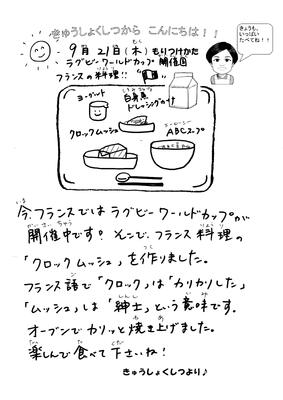 きゅうしょくしつから こんにちは！！
きょうも、
いっぱい
たべてね！！
9月 21日（木）もりつけかた
ラグビーワールドカップ 開催国
フランスの料理！！
ヨーグルト
白身魚
ドレッシングがけ
クロックムッシュ
ABCスープ
今フランスではラグビーワールドカップが
開催中です！そこで、フランス料理の
「クロックムッシュ」を作りました。
フランス語で「クロック」は「カリカリした」
「ムッシュ」は「紳士」という意味です。
オーブンでカリッと焼き上げました。
楽しんで食べて下さいね！
きゅうしょくしつより♪